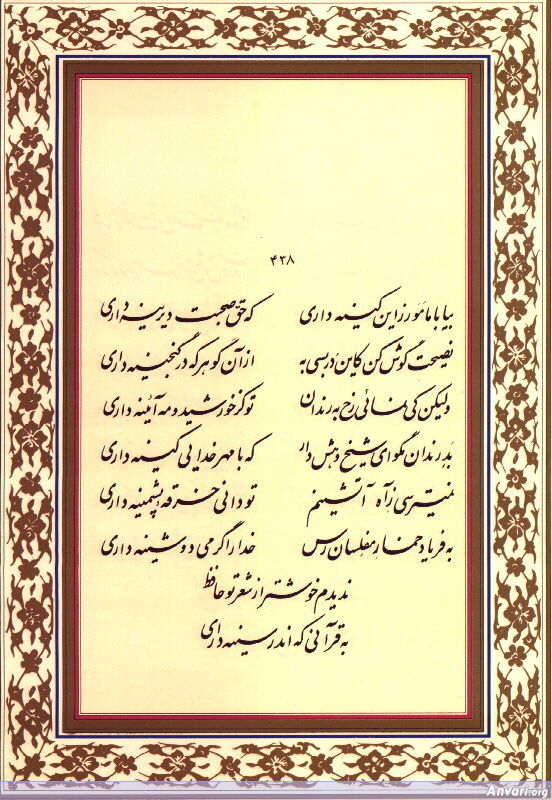 ۴۳۸
بیا با ما مورز این کینه داری که حق صحبت دیرینه داری
نصیحت گوش کن کاین در بسی به از آن گوهر که در گنجینه داری
ولیکن کی نمائی رخ به رندان تو کز خورشید و مه آئینه داری
بد رندان مگو ای شیخ و هش دار که با مهر خدایی کینه داری
نمیترسی ز آه آتشینم تو دانی خرقه پشمینه داری
به فریاد خمار مفلسان رس خدا را گر می دوشینه داری
ندیدم خوشتر از شعر تو حافظ
به قرآنی که اندر سینه داری
Anvari.org